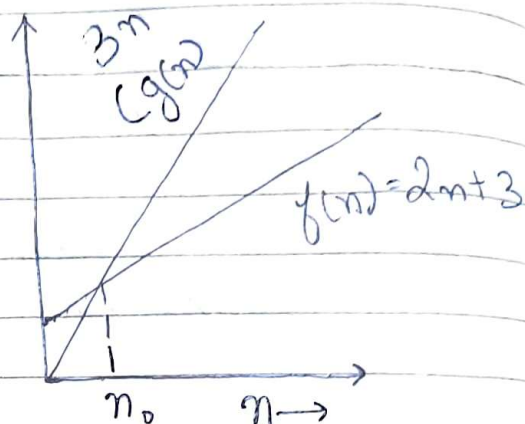 3n
Cg(n)
f(n) = 2n+3
n₀ n→